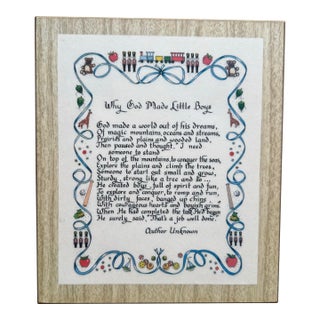 Why God Made Little Boys
God made a world out of his dreams,
Of magic mountains, oceans and streams,
Prairies and plains and wooded land,
Then paused and thought, "I need
someone to stand
On top of the mountains, to conquer the seas,
Explore the plains and climb the trees,
Someone to start out small and grow,
Sturdy, strong like a tree and so...
He created boys, full of spirit and fun,
To explore and conquer, to romp and run,
With dirty faces, banged up chins
With courageous hearts and boyish grins.
When He had completed the task He'd begun
He surely said, "That's a job well done."
Author Unknown